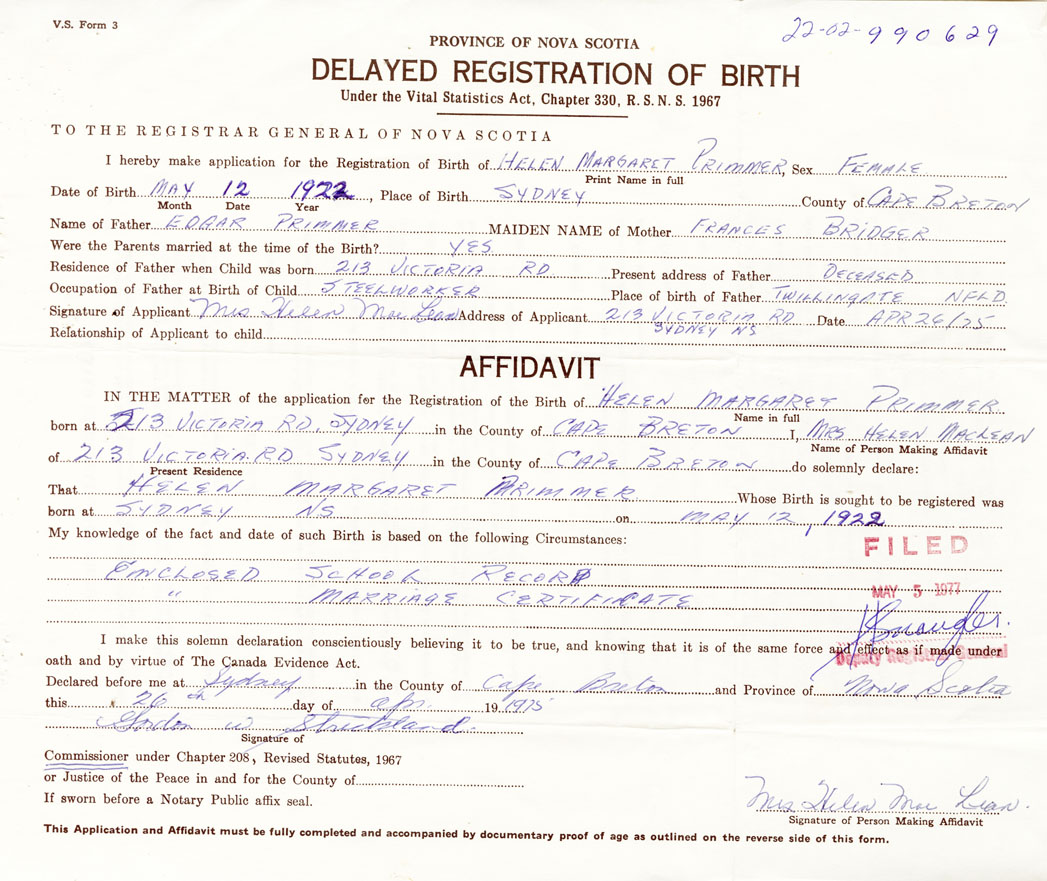 V.S. Form 3
22-02-990629
PROVINCE OF NOVA SCOTIA
DELAYED REGISTRATION OF BIRTH
Under the Vital Statistics Act, Chapter 330, R. S. N. S. 1967
TO THE REGISTRAR GENERAL OF NOVA SCOTIA
I hereby make application for the Registration of Birth of HELEN MARGARET PRIMMER, Sex FEMALE
Print Name in full
Date of Birth MAY 12 1922, Place of Birth SYDNEY County of CAPE BRETON
Month Date Year
Name of Father EDGAR PRIMMER MAIDEN NAME of Mother FRANCES BRIDGER
Were the Parents married at the time of the Birth? YES
Residence of Father when Child was born 213 VICTORIA RD Present address of Father DECEASED
Occupation of Father at Birth of Child STEELWORKER Place of birth of Father TWILLINGATE NFLD
Signature of Applicant Mrs Helen Mac Lean Address of Applicant 213 VICTORIA RD Date APR 26/75
SYDNEY NS
Relationship of Applicant to child
AFFIDAVIT
IN THE MATTER of the application for the Registration of the Birth of HELEN MARGARET PRIMMER
Name in full
born at 213 VICTORIA RD. SYDNEY in the County of CAPE BRETON I, MRS HELEN MACLEAN
Name of Person Making Affidavit
of 213 VICTORIA RD SYDNEY in the County of CAPE BRETON do solemnly declare:
Present Residence
That HELEN MARGARET PRIMMER Whose Birth is sought to be registered was
born at SYDNEY NS on MAY 12, 1922
My knowledge of the fact and date of such Birth is based on the following Circumstances:
FILED
ENCLOSED SCHOOL RECORD
MAY 5 1977
" MARRIAGE CERTIFICATE
I make this solemn declaration conscientiously believing it to be true, and knowing that it is of the same force and effect as if made under
Deputy Registrar General
oath and by virtue of The Canada Evidence Act.
Declared before me at Sydney in the County of Cape Breton and Province of Nova Scotia
this 26th day of Apr. 19 1975
Gordon W Strickland
Signature of
Commissioner under Chapter 208, Revised Statutes, 1967
or Justice of the Peace in and for the County of
If sworn before a Notary Public affix seal.
Mrs Helen Mac Lean.
Signature of Person Making Affidavit
This Application and Affidavit must be fully completed and accompanied by documentary proof of age as outlined on the reverse side of this form.